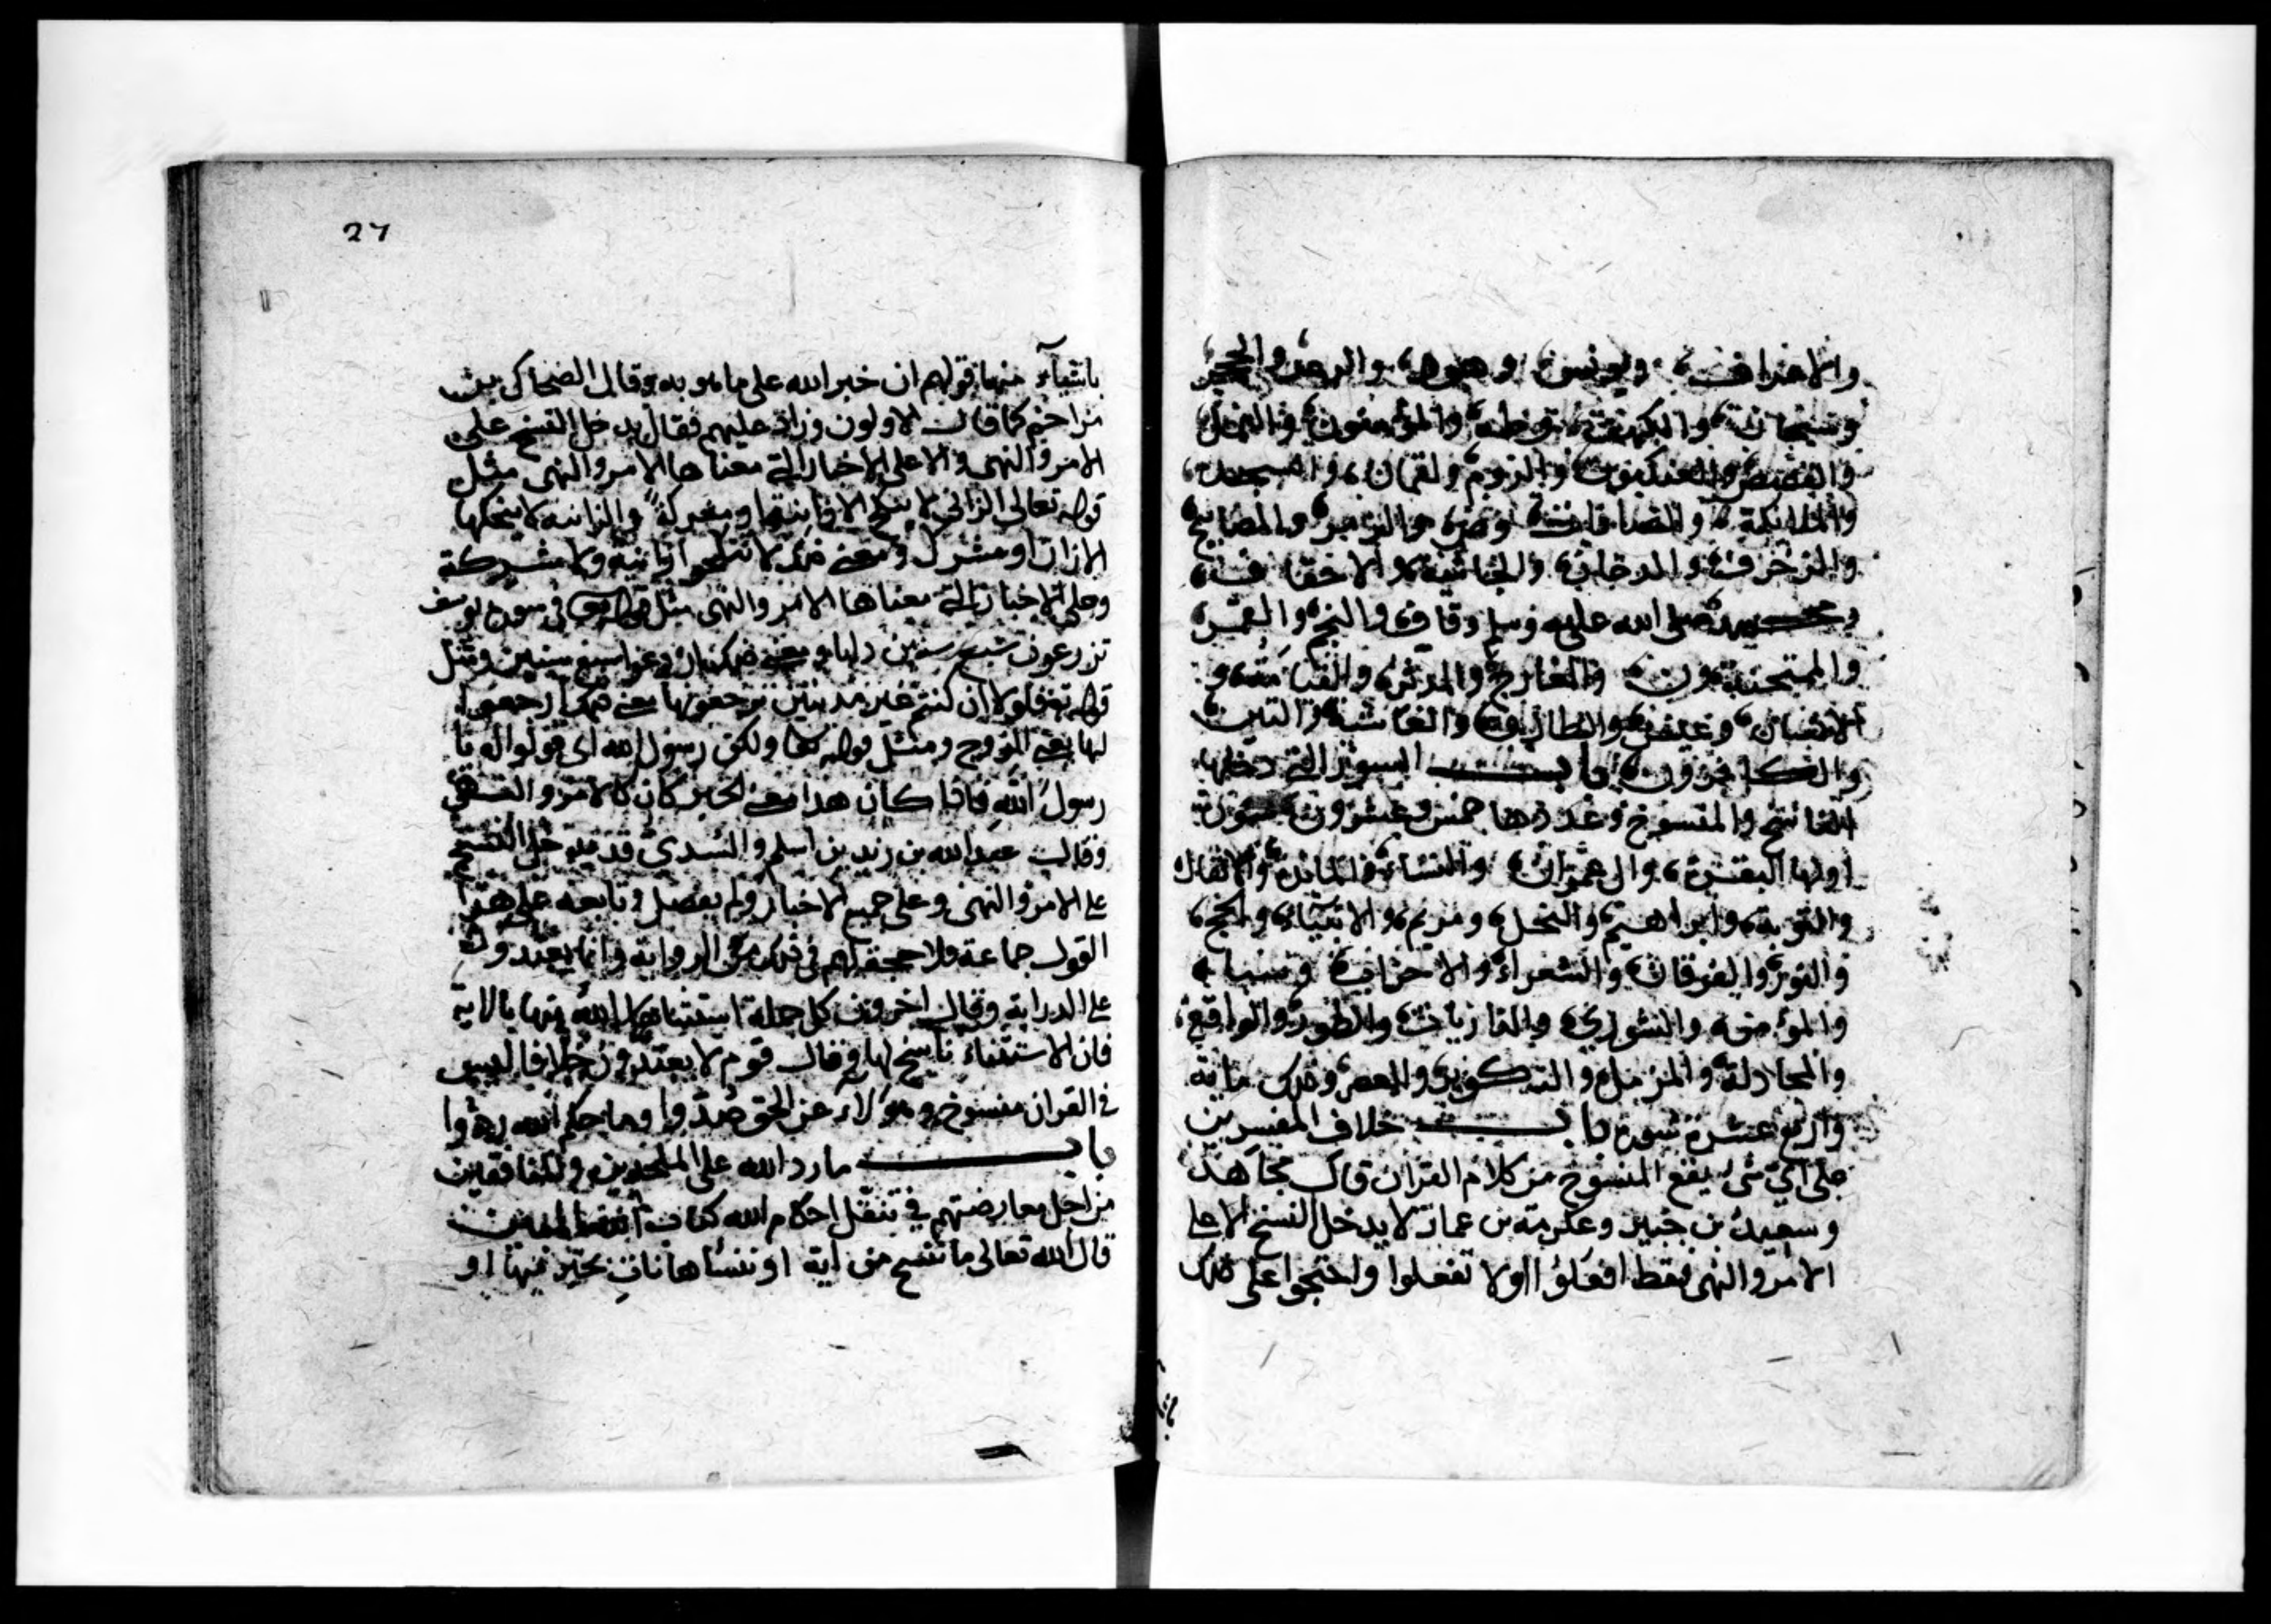 والاعراف ويونس وهود والرعد والحجر
وسبحان والكهف وطه والمؤمنون والنمل
والقصص والعنكبوت والروم ولقمان والسجدة
والملائكة والصافات وص والزمر والمصابيح
والزخرف والدخان والجاثية والاحقاف
ومحمد صلى الله عليه وسلم وقاف والنجم والقمر
والممتحنة ون والمعارج والمدثر والقيامة و
الانسان وعبس والطارق والغاشية والتين
والكافرون باب السور التي دخلها
الناسخ والمنسوخ وعددها خمس وعشرون سورة
اولها البقرة وال عمران والنساء والمائدة والانفال
والتوبة وابراهيم والنحل ومريم والانبياء والحج
والنور والفرقان والشعراء والاحزاب وسبا
والمؤمن والشورى والذاريات والطور والواقعة
والمجادلة والمزمل والتكوير والعصر وذلك مائة
واربع عشرة سورة باب خلاف المفسرين
على اي شئ يقع المنسوخ من كلام القران قال مجاهد
وسعيد بن جبير وعكرمة بن عمار لا يدخل النسخ الا على
الامر والنهى فقط افعلوا اولا تفعلوا واحتجوا على ذلك
27
باشياء منها قولهم ان خبر الله على ما هو به وقال الضحاك بن
مزاحم كما قال الاولون وزاد عليهم فقال يدخل النسخ على
الامر والنهى والا على الاخبار التي معناها الامر والنهى مثل
قوله تعالى الزاني لا ينكح الا زانية او مشركة والزانية لا ينكحها
الا زان او مشرك ومعنى ذلك لا تنكحوا زانية ولا مشركة
وعلى الاخبار التي معناها الامر والنهى مثل قوله تعالى في سورة يوسف
تزرعون سبع سنين دابا ومعنى ذلك ازرعوا سبع سنين ومثل
قوله تعالى فلولا ان كنتم غير مدينين ترجعونها معنى ذلك ارجعوا
لها يعنى الروح ومثل قوله تعالى ولكن رسول الله اى قولوا له يا
رسول الله فاذا كان هذا معنى الخبر كان كالامر والنهى
وقال عبد الله بن زيد بن اسلم والسدي قد يدخل النسخ
على الامر والنهى وعلى جميع الاخبار ولم يفصل وتابعه على هذا
القول جماعة ولا حجة لهم في ذلك من الرواية وانما يعتمدون
على الدراية وقال اخرون كل جملة استثنا الله منها بالاية
فان الاستثناء ناسخ لها وقال قوم لا يعتد خلافا ليس
في القران منسوخ وهؤلاء عن الحق صدوا وما حكم الله ردوا
باب ما رد الله على الملحدين والمنافقين
من اجل معارضتهم في تنقل احكام الله كتاب
قال الله تعالى ما ننسخ من اية او ننساها نات بخير منها او